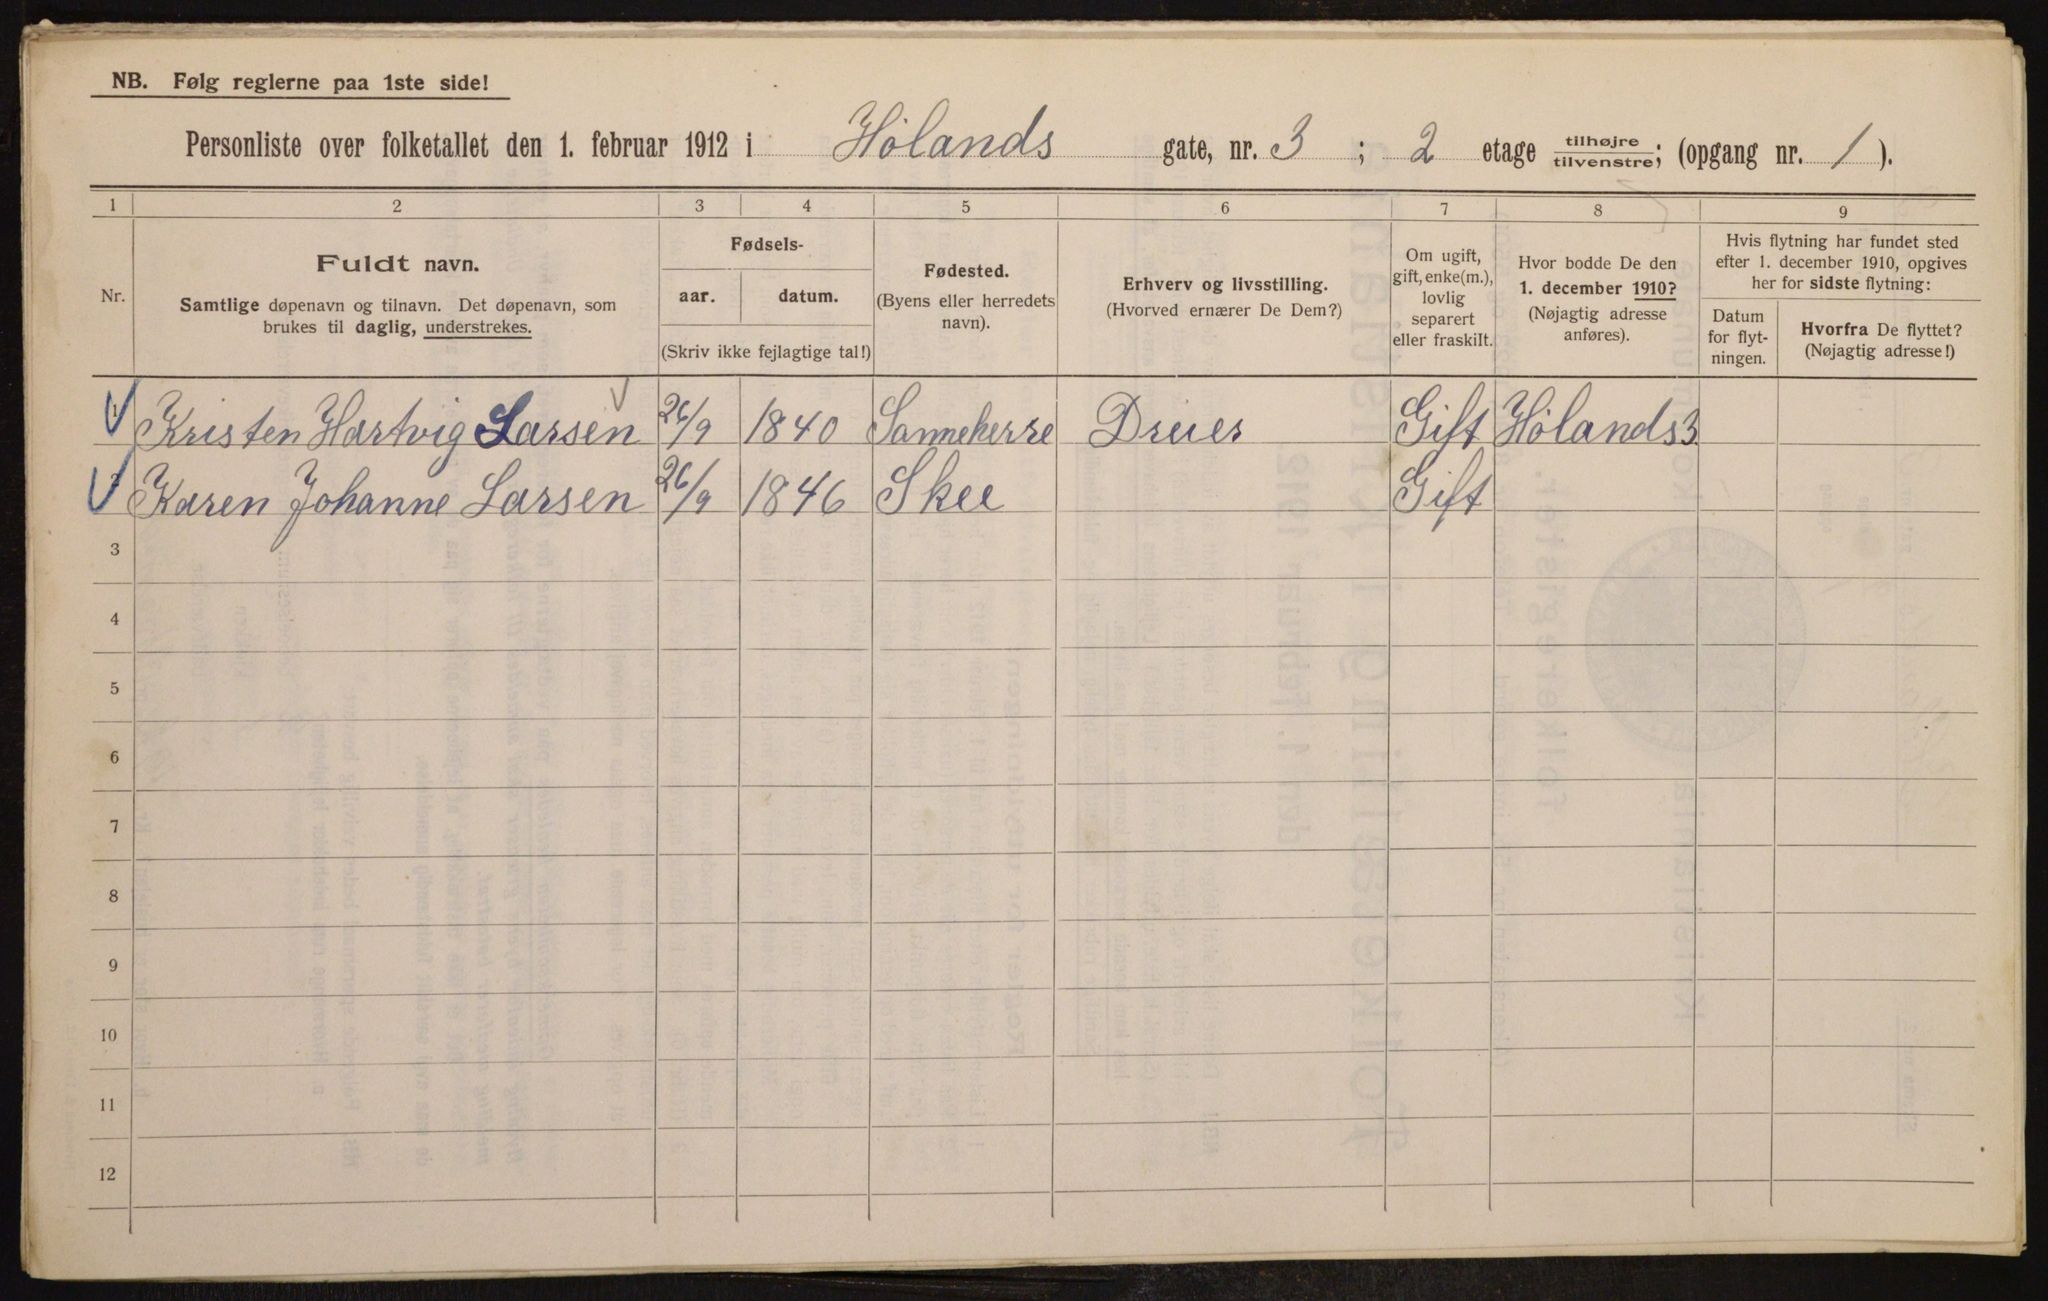 NB. Følg reglerne paa 1ste side!
Personliste over folketallet den 1. februar 1912 i Hølands gate, nr. 3 ; 2 etage tilhøjre tilvenstre; (opgang nr. 1 ).
1 2 3 4 5 6 7 8 9
Nr.
Fuldt navn.
Samtlige døpenavn og tilnavn. Det døpenavn, som
brukes til daglig, understrekes.
Fødsels-
aar. datum.
(Skriv ikke fejlagtige tal!)
Fødested.
(Byens eller herredets
navn).
Erhverv og livsstilling.
(Hvorved ernærer De Dem?)
Om ugift,
gift, enke(m.),
lovlig
separert
eller fraskilt.
Hvor bodde De den
1. december 1910?
(Nøjagtig adresse
anføres).
Hvis flytning har fundet sted
efter 1. december 1910, opgives
her for sidste flytning:
Datum
for flyt-
ningen.
Hvorfra De flyttet?
(Nøjagtig adresse!)
1 Kristen Hartvig Larsen 26/9 1840 Sannekerre Dreier Gift Hølands 3
2 Karen Johanne Larsen 26/9 1846 Skee Gift
3
4
5
6
7
8
9
10
11
12